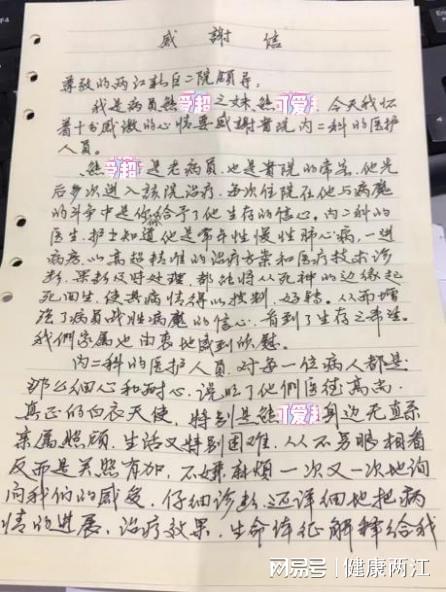 感謝信
尊敬的两江新区二院领导:
我是病员熊可爱之妹熊可爱,今天我怀
着十分感激的心情要感謝貴院内二科的医护
人员。
熊可爱是老病员,也是貴院的常客,他先
后多次进入该院治疗,每次住院在他与病魔
的斗争中是你们给予了他生存的信心。内二科的
医生、护士知道他是常年性慢性肺心病,一进
病房,以高超精准的治疗方案和医疗技术诊
断,果断及时处理,都能將从死神的边缘起
死回生,使其病情得以控制,好转。从而增
强了病员战胜病魔的信心,看到了生存之希望。
我們家属也由衷地感到欣慰。
内二科的医护人员,对每一位病人都是
那么细心和耐心,说明了他們医德高尚,
真正的白衣天使,特别是熊可爱身边无直系
亲属照顾,生活又特别困难,从不另眼相看
反而是关照有加,不嫌麻煩一次又一次地询
问我们的感受,仔细诊断,还详细地把病
情的进展,治疗效果,生命体征解释给我
网易号 | 健康两江